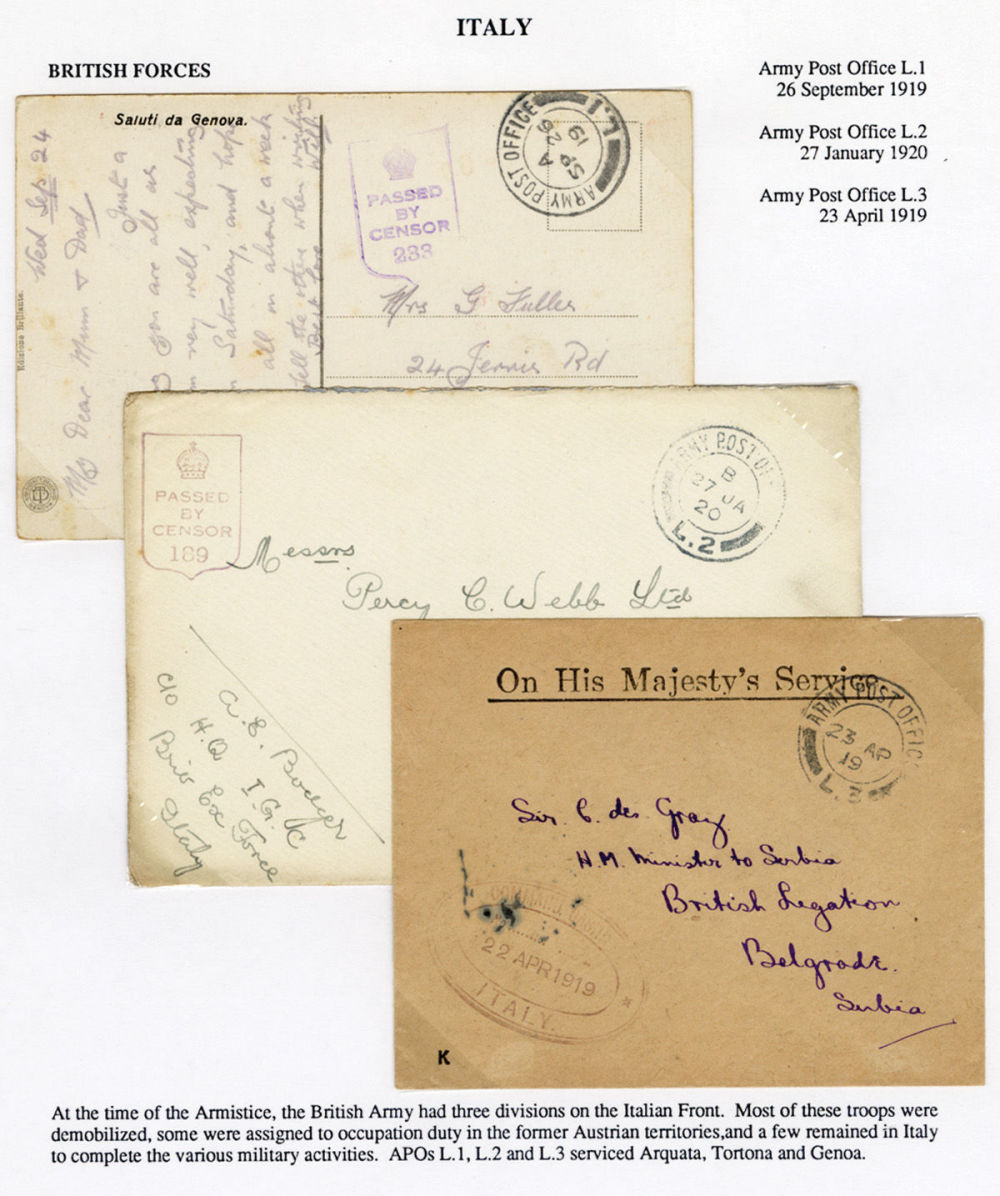 ITALY
BRITISH FORCES
Army Post Office L.1
26 September 1919
Army Post Office L.2
27 January 1920
Army Post Office L.3
23 April 1919
Saluti da Genova.
Edizione Brillante.
Wed Sep 24
My Dear Mum & Dad
Just a
you are all as
very well, expecting
Saturday, and hope
all in about a week
tell the other when writing
Best Love Will.
PASSED
BY
CENSOR
233
ARMY POST OFFICE
A
26 SP
19
L.1
Mrs G Fuller
24 Jervis Rd
PASSED
BY
CENSOR
189
ARMY POST OF
B
27 JA
20
L.2
Messrs
Percy C. Webb Ltd
A. E. Bodger
c/o H.Q I.G.C
Brit Ex Force
Italy
On His Majesty's Service
ARMY POST OFFIC
23 AP
19
L.3
Sir C. des Graz
H.M. Minister to Serbia
British Legation
Belgrade.
Serbia
22 APR 1919
ITALY.
K
At the time of the Armistice, the British Army had three divisions on the Italian Front. Most of these troops were
demobilized, some were assigned to occupation duty in the former Austrian territories,and a few remained in Italy
to complete the various military activities. APOs L.1, L.2 and L.3 serviced Arquata, Tortona and Genoa.